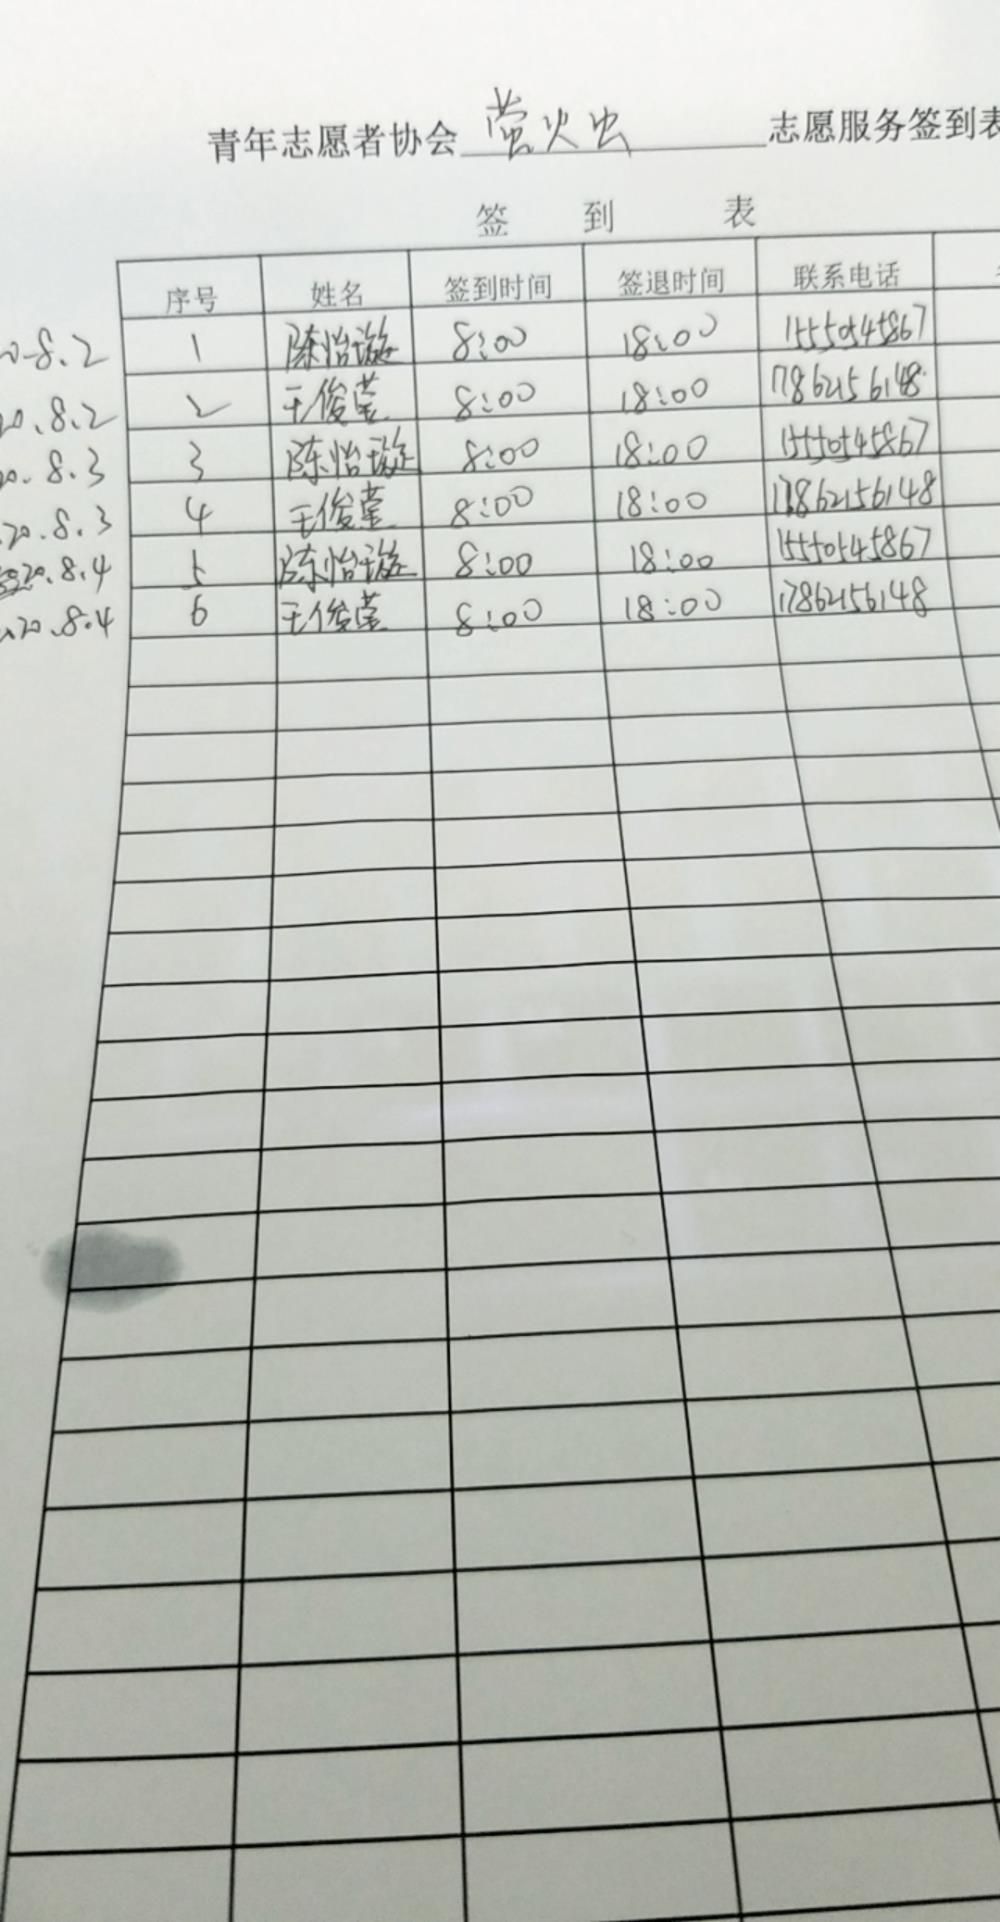 青年志愿者协会 萤火虫 志愿服务签到表
签 到 表
序号 姓名 签到时间 签退时间 联系电话
20.8.2 1 陈怡璇 8:00 18:00 15550545867
20.8.2 2 王俊莹 8:00 18:00 17862156148
20.8.3 3 陈怡璇 8:00 18:00 15550545867
20.8.3 4 王俊莹 8:00 18:00 17862156148
2020.8.4 5 陈怡璇 8:00 18:00 15550545867
20.8.4 6 王俊莹 8:00 18:00 17862156148